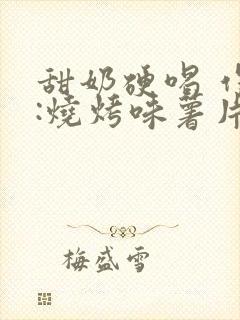 甜奶硬唱
:燒烤味薯片
梅盛雪